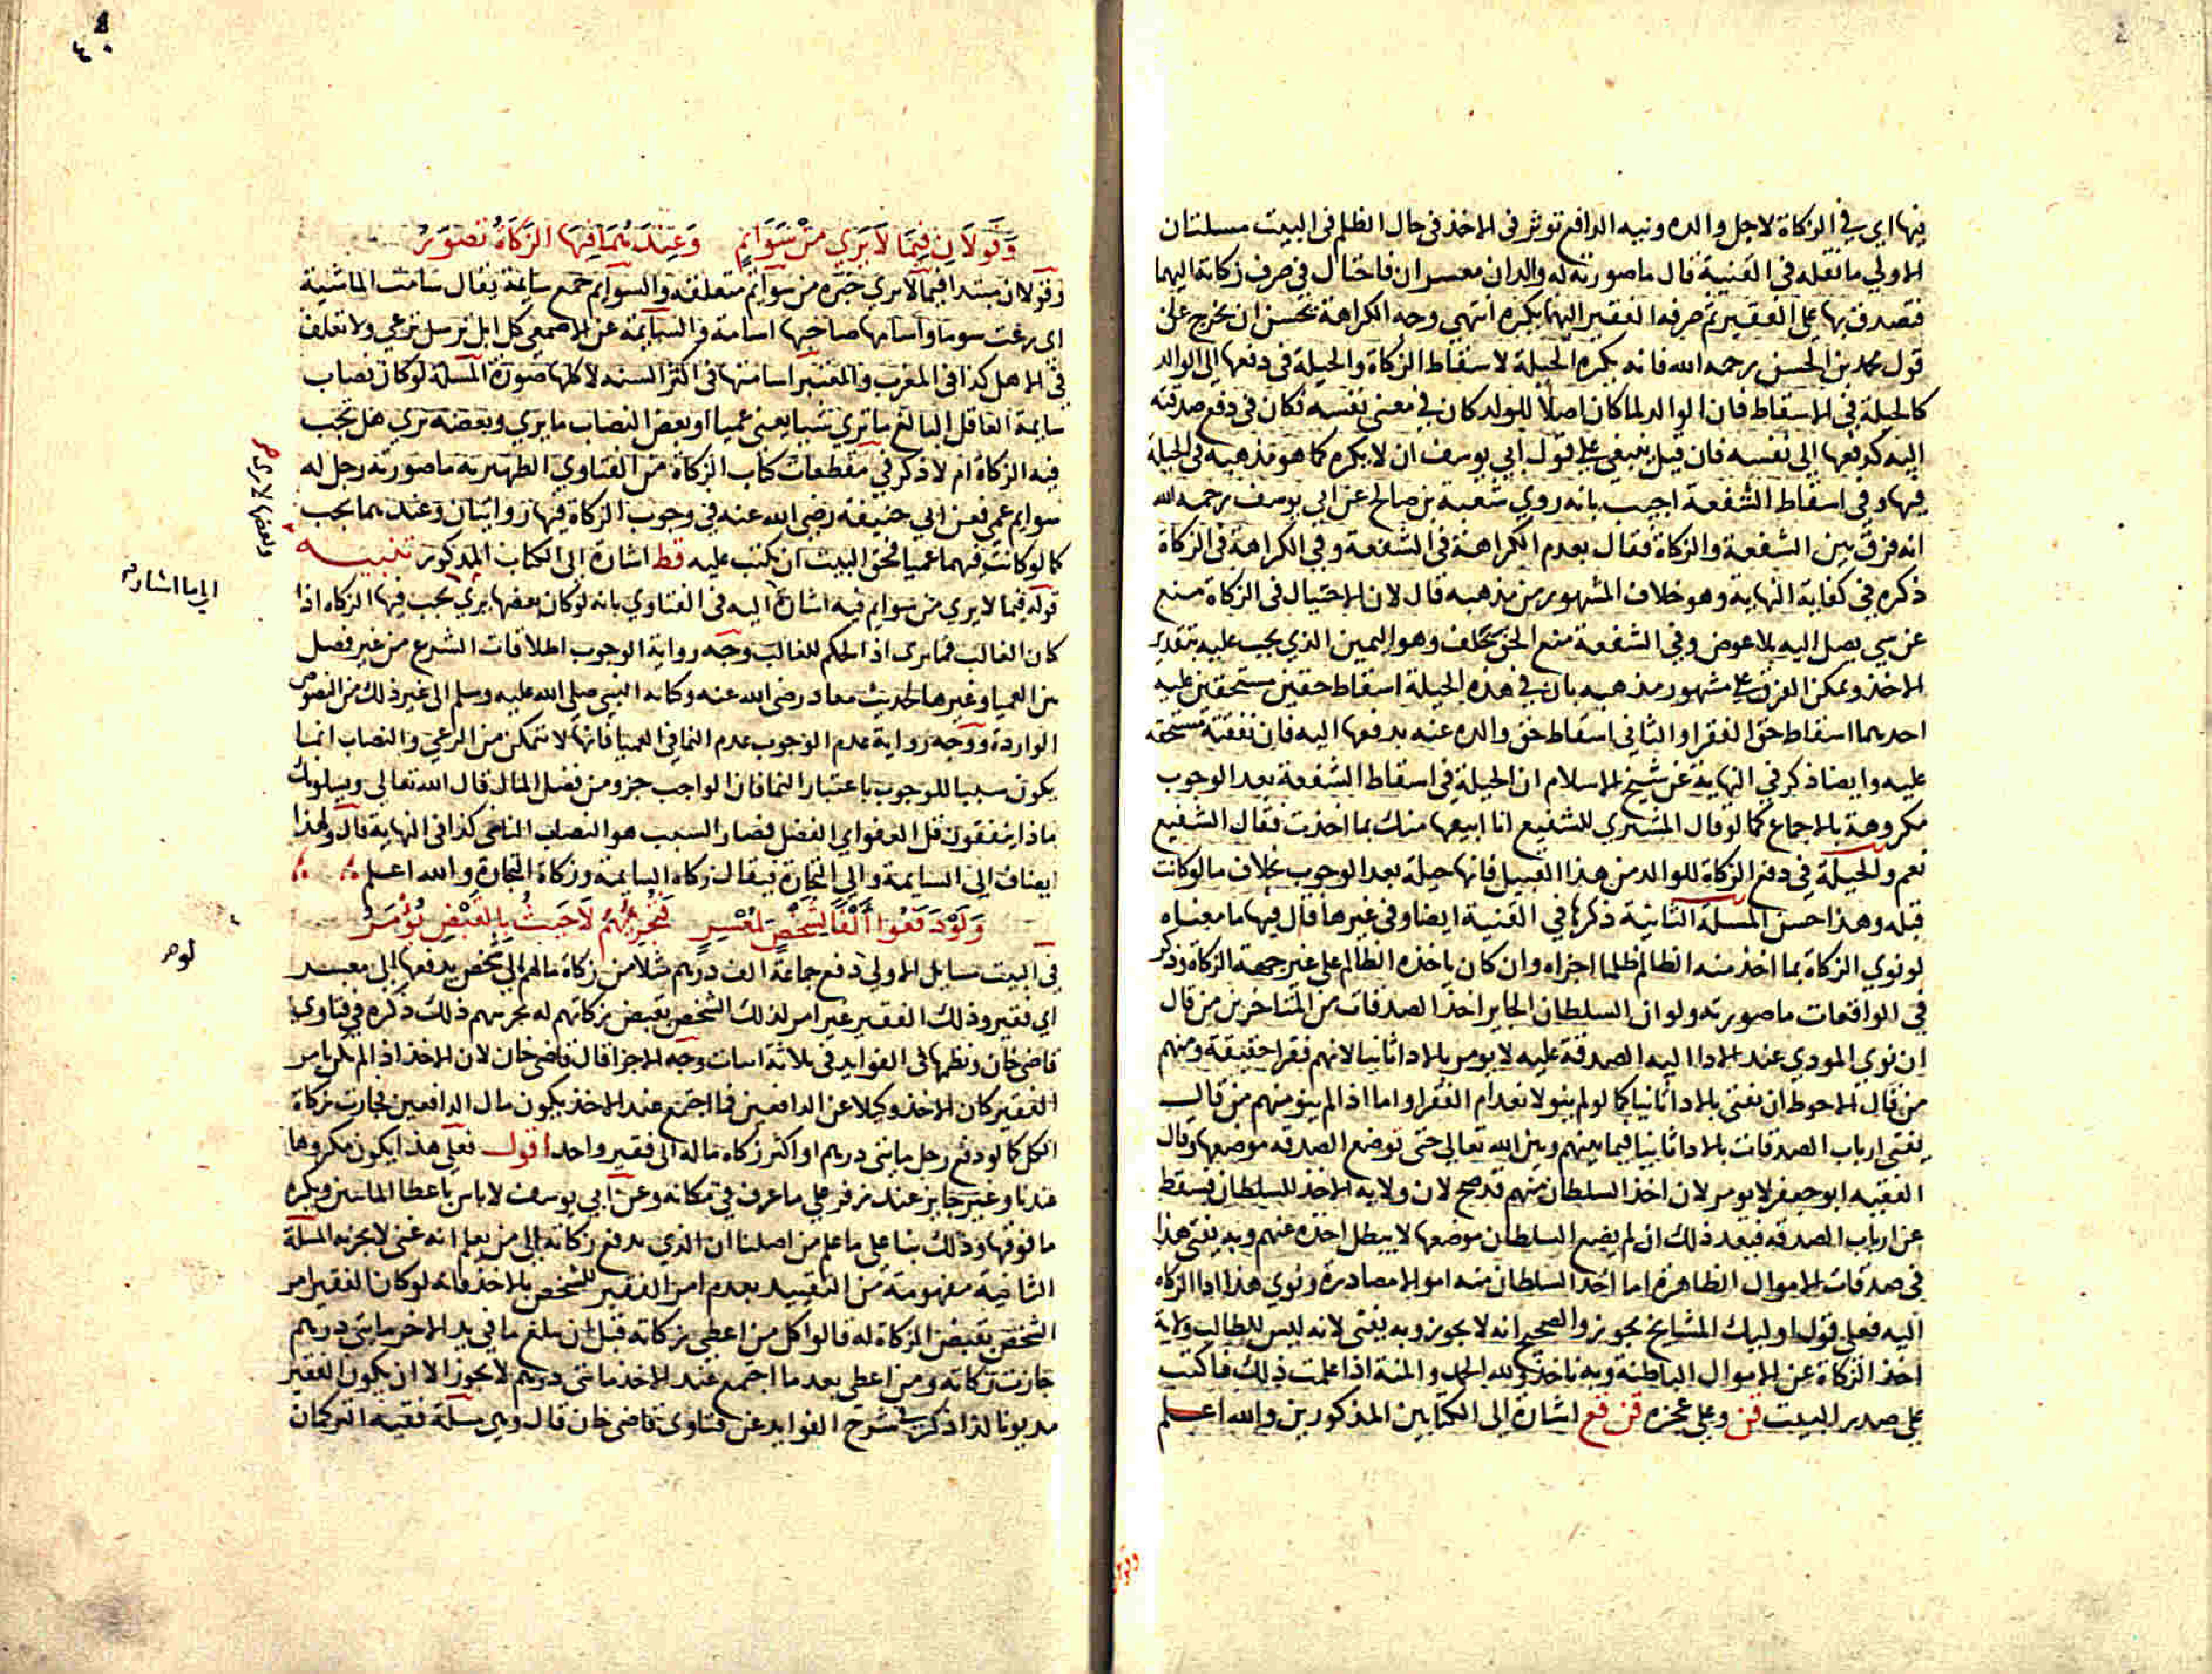 فيها اي في الزكاة لاجل والده ونيه الدافع توثر في الاخذ في حال الظلم في البيت مسلتان
الاولي ما نقله في القنية قال ما صورته له والدان معسران فاحتال في صرف زكاته اليهما
فتصدق بها علي الفقير ثم صرفه الفقير اليهما يكره انتهي وجه الكراهة يحسن ان يخرج علي
قول محمد بن الحسن رحمه الله فانه يكره الحيلة لاسقاط الزكاة والحيلة في دفعها الي الوالد
كالحيلة في الاسقاط فان الوالد لما كان اصلا للولد كان في معني نفسه فكان في دفع صدقته
اليه كدفعها الي نفسه فان قيل ينبغي علي قول ابي يوسف ان لا يكره كما هو مذهبه في الحيلة
فيها وفي اسقاط الشفعة اجيب بانه روي شعبة بن صالح عن ابي يوسف رحمه الله
انه فرق بين الشفعة والزكاة فقال بعدم الكراهة في الشفعة وفي الكراهة في الزكاة
ذكره في كفاية النهاية وهو خلاف المشهور من مذهبه قال لان الاحتيال في الزكاة منع
عن شي يصل اليه بلا عوض وفي الشفعة منع الحق بخلف وهو الثمن الذي يجب عليه بتقدير
الاخذ ويمكن الفرق علي مشهور مذهبه بان في هذه الحيلة اسقاط حقين مستحقين عليه
احدهما اسقاط حق الفقرا والثاني اسقاط حق والده عنه بدفعها اليه فان نفقته مستحقه
عليه وايضا ذكر في النهاية عن شيخ الاسلام ان الحيلة في اسقاط الشفعة بعد الوجوب
مكروهة بالاجماع كما لو قال المشتري للشفيع انا ابيعها منك بما اخذت فقال الشفيع
نعم والحيلة في دفع الزكاة للوالد من هذا القبيل فانها حيلة بعد الوجوب بخلاف ما لو كانت
قبله وهذا احسن المسلة الثانية ذكرها في القنية ايضا وفي غيرها قال فيها ما معناه
لو نوي الزكاة بما اخذ منه الظالم ظلما اجزاه وان كان ياخذه الظالم علي غير جهة الزكاة وذكر
في الواقعات ما صورته ولو ان السلطان الجاير اخذ الصدقات من المتاخرين من قال
ان نوي المودي عند الادا اليه الصدقة عليه لا يومر بالادا ثانيا لانهم فقرا حقيقة ومنهم
من قال الاحوط ان يفتي بالادا ثانيا كما لو لم ينو لانعدام الفقرا واما اذا لم ينو منهم من قال
يفتي ارباب الصدقات بالادا ثانيا فيما بينهم وبين الله تعالي حتي توضع الصدقه موضعها وقال
الفقيه ابو جعفر لا يومر لان اخذ السلطان منهم قد صح لان ولايه الاخذ للسلطان فسقط
عن ارباب الصدقه فبعد ذلك ان لم يضع السلطان موضعها لا يبطل اخذه عنهم وبه يفتي هذا
في صدقات الاموال الظاهرة اما اخذ السلطان منه اموالا مصادرة ونوي هذا ادا الزكاه
اليه فعلي قول اوليك المشايخ يجوز والصحيح انه لا يجوز وبه يفتي لانه ليس للطالب ولاية
اخذ الزكاة عن الاموال الباطنة وبه ناخذ ولله الحمد والمنة اذا علمت ذلك فاكتب
علي صدر البيت قن وعلي عجزه قن قع اشارة الي الكتابين المذكورين والله اعلم
وقولان
وَقَولَانِ فِيمَا لَا يَري مِنْ سَوَايمٍ وَعِنْدَهُمَا فِيهَا الزَكَاةُ تُصَوَّرُ
وقولان مبتدا فيما لا يري خبره من سوايم متعلقه والسوايم جمع سايمة يقال سامت الماشية
اي رعت سوما واسامها صاحبها اسامة والسايمة عن الاصمعي كل ابل ترسل ترعي ولا تعلف
في الاهل كذا في المغرب والمعتبر اسامتها في اكثر السنه لا كلها صورة المسلة لو كان نصاب
سايمة العاقل البالغ ما تري شيا يعني عميا او بعض النصاب ما يري وبعضه يري هل تجب
فيه الزكاة ام لا ذكر في مقطعات كتاب الزكاة من الفتاوي الظهيريه ما صورته رجل له
سوايم عمي فعن ابي حنيفة رضي الله عنه في وجوب الزكاة فيها روايتان وعندهما يجب
كما لو كانت فيهما عميا فحق البيت ان يكتب عليه قط اشارة الي الكتاب المذكور تنبيه
قوله فيما لا يري من سوايم فيه اشارة اليه في الفتاوي بانه لو كان بعضها يري يجب فيها الزكاه اذا
كان الغالب مما يري اذ الحكم للغالب وجه رواية الوجوب اطلاقات الشرع من غير فصل
بين العميا وغيرها كحديث معاذ رضي الله عنه وكتابه النبي صلي الله عليه وسلم الي غير ذلك من النصوص
الواردة ووجه رواية عدم الوجوب عدم النما في العميا فانها لا تتمكن من الرعي والنصاب انما
يكون سببا للوجوب باعتبار النما فان الواجب جزو من فضل المال قال الله تعالي ويسلونك
ماذا ينفقون قل العفو اي الفضل فصار السبب هو النصاب النامي كذا في النهاية قال ولهذا
يضاف الي السايمة والي التجارة فيقال زكاه السايمة وزكاة التجارة والله اعلم
وَلَوْ دَفَعُوا أَلْفًا لِشَخْصٍ لِمُعْسِرٍ فَتُجْزِيهُمُ لَا حَيثُ بِالْقَبْضِ يُؤْمَرُ
في البيت مسايل الاولي دفع جماعة الف درهم مثلا من زكاة مالهم الي شخص يدفعها الي معسر
اي فقير وذلك الفقير غير امر لذلك الشخص بقبض زكاتهم له يجزيهم ذلك ذكره في فتاوي
قاضي خان ونظمها في الفوايد في ثلاثة ابيات وجه الاجزا قال قاضي خان لان الاخذ اذا لم يكن بامر
الفقير كان الاخذ وكيلا عن الدافعين فما اجتمع عند الاخذ يكون مال الدافعين فجازت زكاة
الكل كما لو دفع رجل مايتي درهم او اكثر زكاه ماله الي فقير واحد اقول فعلي هذا يكون مكروها
عندنا وغير جايز عند زفر علي ما عرف في مكانه وعن ابي يوسف لا باس باعطا المايتين ويكره
ما فوقها وذلك بنا علي ما علم من اصلنا ان الذي يدفع زكاته الي من يعلم انه غني لا يجزيه المسلة
الثانية مفهومة من التقييد بعدم امر الفقير للشخص بالاخذ فانه لو كان الفقير امر
الشخص بقبض الزكاة له قالوا كل من اعطي زكاته قبل ان يبلغ ما في يد الاخر مايتي درهم
جازت زكاته ومن اعطي بعد ما اجتمع عند الاخذ مايتي درهم لا يجوز الا ان يكون الفقير
مديونا لذا ذكر في شرح الفوايد عن فتاوي قاضي خان قال وهي مسلة فقيه التركمان
وبعضها لا يري
الي ما اشار